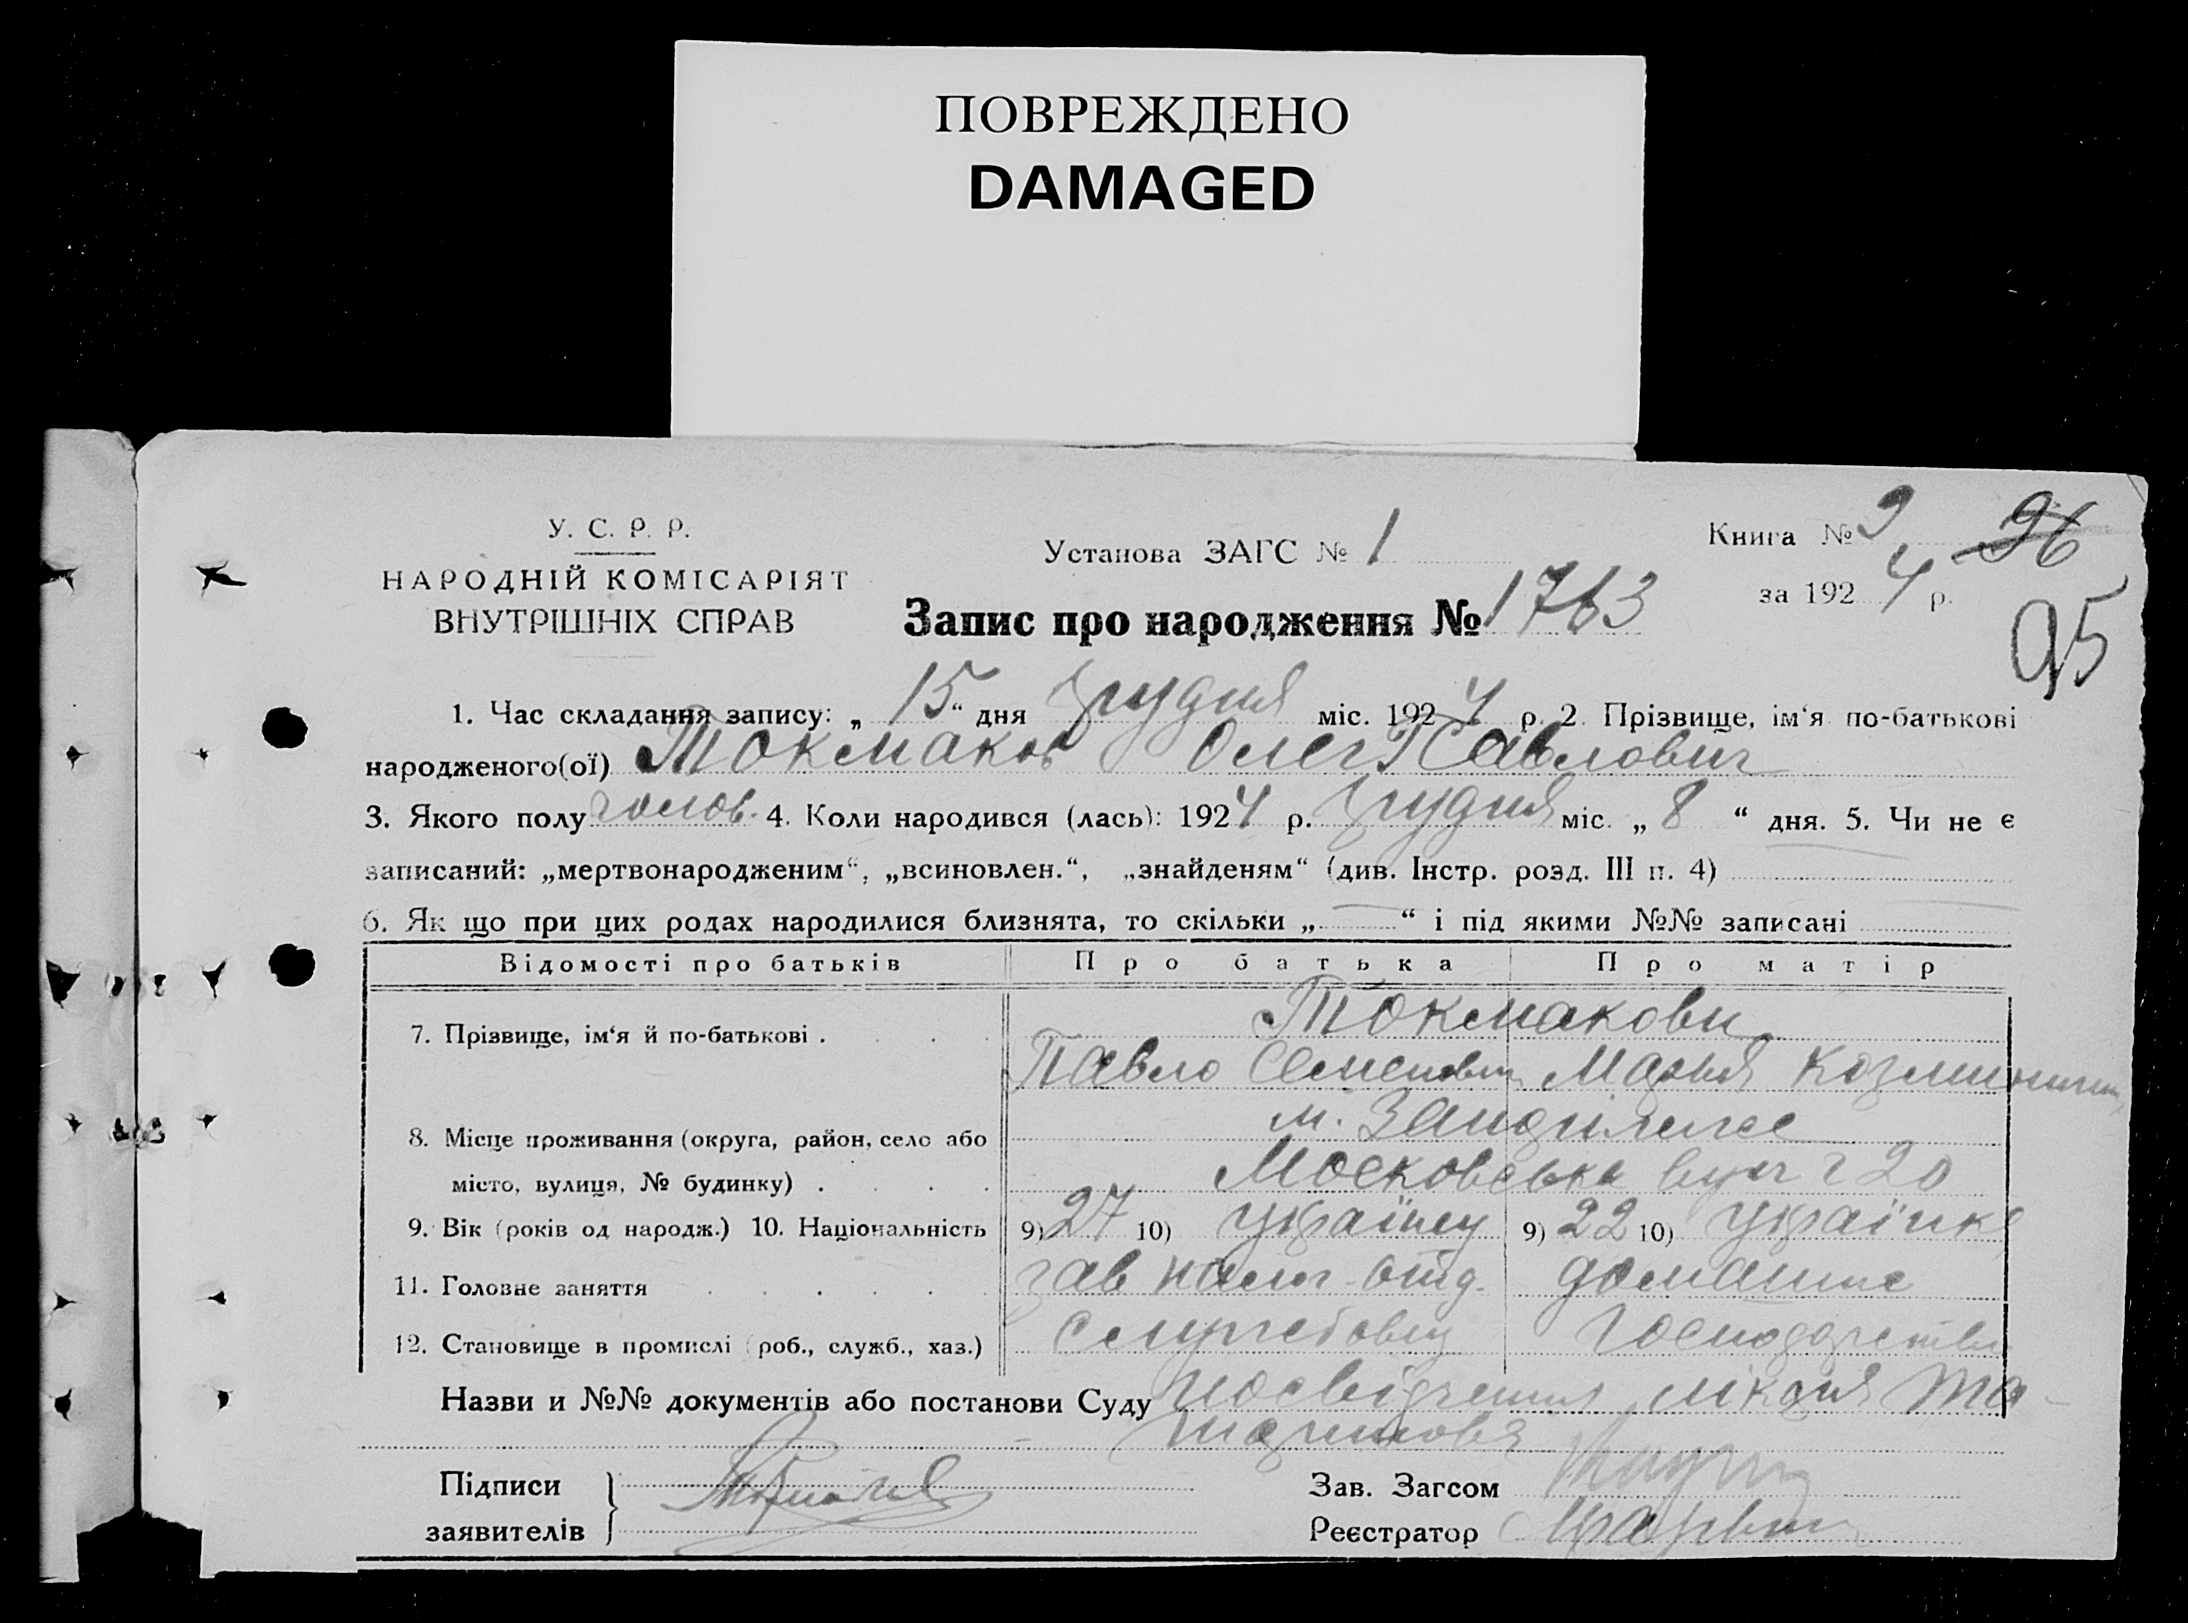 ПОВРЕЖДЕНО
DAMAGED
У. С. Р. Р.
НАРОДНІЙ КОМІСАРІЯТ
ВНУТРІШНІХ СПРАВ
Установа ЗАГС № 1
Книга № 9 96
за 1924 р.
95
Запис про народження № 1763
1. Час складання запису: „ 15 “ дня грудня міс. 1924 р. 2. Прізвище, ім‘я по-батькові
народженого(ої) Токмаков Олег Павлович
3. Якого полу чолов. 4. Коли народився (лась): 1924 р. грудня міс. „ 8 “ дня. 5. Чи не є
записаний: „мертвонародженим“, „всиновлен.“, „знайденям“ (див. Інстр. розд. III п. 4)
6. Як що при цих родах народилися близнята, то скільки „ — “ і під якими №№ записані
Відомості про батьків Про батька Про матір
Токмакови
7. Прізвище, ім‘я й по-батькові .
Павло Семенович Марья
м. Запоріжже
8. Місце проживання (округа, район, село або
місто, вулиця, № будинку) . Московська вул ч 20
9. Вік (років од народж.) 10. Національність 9) 27 10) українец 9) 22 10) українка
11. Головне заняття зав налог отд. домашнє
12. Становище в промислі (роб., служб., хаз.) служебовец господарство
Назви и №№ документів або постанови Суду посвідчення лікаря
Підписи
заявителів
Зав. Загсом
Реєстратор